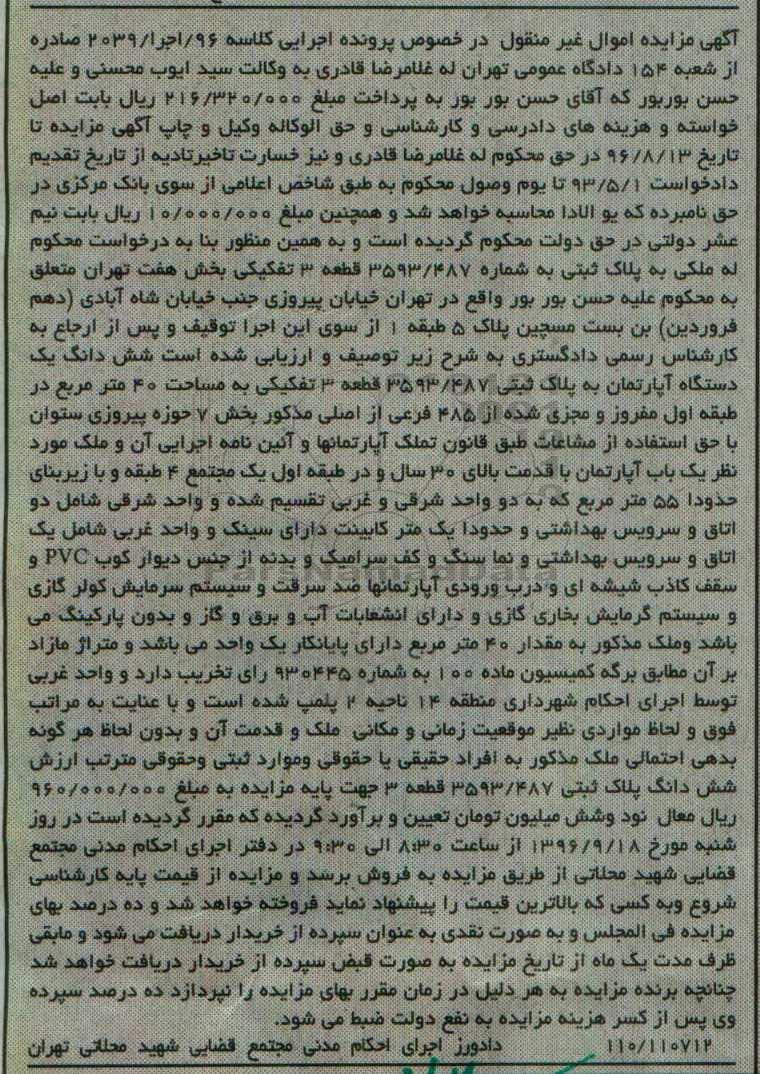 آگهی مزایده اموال غیر منقول در خصوص پرونده اجرایی کلاسه ۹۶/اجرا/۲۰۳۹ صادره
از شعبه ۱۵۴ دادگاه عمومی تهران له غلامرضا قادری به وکالت سید ایوب محسنی و علیه
حسن بوربور که آقای حسن بور بور به پرداخت مبلغ ۲۱۶/۳۲۰/۰۰۰ ریال بابت اصل
خواسته و هزینه های دادرسی و کارشناسی و حق الوکاله وکیل و چاپ آگهی مزایده تا
تاریخ ۹۶/۸/۱۳ در حق محکوم له غلامرضا قادری و نیز خسارت تاخیرتادیه از تاریخ تقدیم
دادخواست ۹۳/۵/۱ تا یوم وصول محکوم به طبق شاخص اعلامی از سوی بانک مرکزی در
حق نامبرده که یو الادا محاسبه خواهد شد و همچنین مبلغ ۱۰/۰۰۰/۰۰۰ ریال بابت نیم
عشر دولتی در حق دولت محکوم گردیده است و به همین منظور بنا به درخواست محکوم
له ملکی به پلاک ثبتی به شماره ۳۵۹۳/۴۸۷ قطعه ۳ تفکیکی بخش هفت تهران متعلق
به محکوم علیه حسن بور بور واقع در تهران خیابان پیروزی جنب خیابان شاه آبادی (دهم
فروردین) بن بست مسچین پلاک ۵ طبقه ۱ از سوی این اجرا توقیف و پس از ارجاع به
کارشناس رسمی دادگستری به شرح زیر توصیف و ارزیابی شده است شش دانگ یک
دستگاه آپارتمان به پلاک ثبتی ۳۵۹۳/۴۸۷ قطعه ۳ تفکیکی به مساحت ۴۰ متر مربع در
طبقه اول مفروز و مجزی شده از ۴۸۵ فرعی از اصلی مذکور بخش ۷ حوزه پیروزی ستوان
با حق استفاده از مشاعات طبق قانون تملک آپارتمانها و آئین نامه اجرایی آن و ملک مورد
نظر یک باب آپارتمان با قدمت بالای ۳۰ سال و در طبقه اول یک مجتمع ۴ طبقه و با زیربنای
حدودا ۵۵ متر مربع که به دو واحد شرقی و غربی تقسیم شده و واحد شرقی شامل دو
اتاق و سرویس بهداشتی و حدودا یک متر کابینت دارای سینک و واحد غربی شامل یک
اتاق و سرویس بهداشتی و نما سنگ و کف سرامیک و بدنه از جنس دیوار کوب PVC و
سقف کاذب شیشه ای و درب ورودی آپارتمانها ضد سرقت و سیستم سرمایش کولر گازی
و سیستم گرمایش بخاری گازی و دارای انشعابات آب و برق و گاز و بدون پارکینگ می
باشد وملک مذکور به مقدار ۴۰ متر مربع دارای پایانکار یک واحد می باشد و متراژ مازاد
بر آن مطابق برگه کمیسیون ماده ۱۰۰ به شماره ۹۳۰۴۴۵ رای تخریب دارد و واحد غربی
توسط اجرای احکام شهرداری منطقه ۱۴ ناحیه ۲ پلمپ شده است و با عنایت به مراتب
فوق و لحاظ مواردی نظیر موقعیت زمانی و مکانی ملک و قدمت آن و بدون لحاظ هر گونه
بدهی احتمالی ملک مذکور به افراد حقیقی یا حقوقی وموارد ثبتی وحقوقی مترتب ارزش
شش دانگ پلاک ثبتی ۳۵۹۳/۴۸۷ قطعه ۳ جهت پایه مزایده به مبلغ ۹۶۰/۰۰۰/۰۰۰
ریال معال نود وشش میلیون تومان تعیین و برآورد گردیده که مقرر گردیده است در روز
شنبه مورخ ۱۳۹۶/۹/۱۸ از ساعت ۸:۳۰ الی ۹:۳۰ در دفتر اجرای احکام مدنی مجتمع
قضایی شهید محلاتی از طریق مزایده به فروش برسد و مزایده از قیمت پایه کارشناسی
شروع وبه کسی که بالاترین قیمت را پیشنهاد نماید فروخته خواهد شد و ده درصد بهای
مزایده فی المجلس و به صورت نقدی به عنوان سپرده از خریدار دریافت می شود و مابقی
ظرف مدت یک ماه از تاریخ مزایده به صورت قبض سپرده از خریدار دریافت خواهد شد
چنانچه برنده مزایده به هر دلیل در زمان مقرر بهای مزایده را نپردازد ده درصد سپرده
وی پس از کسر هزینه مزایده به نفع دولت ضبط می شود.
۱۱۰/۱۱۰۷۱۲ دادورز اجرای احکام مدنی مجتمع قضایی شهید محلاتی تهران